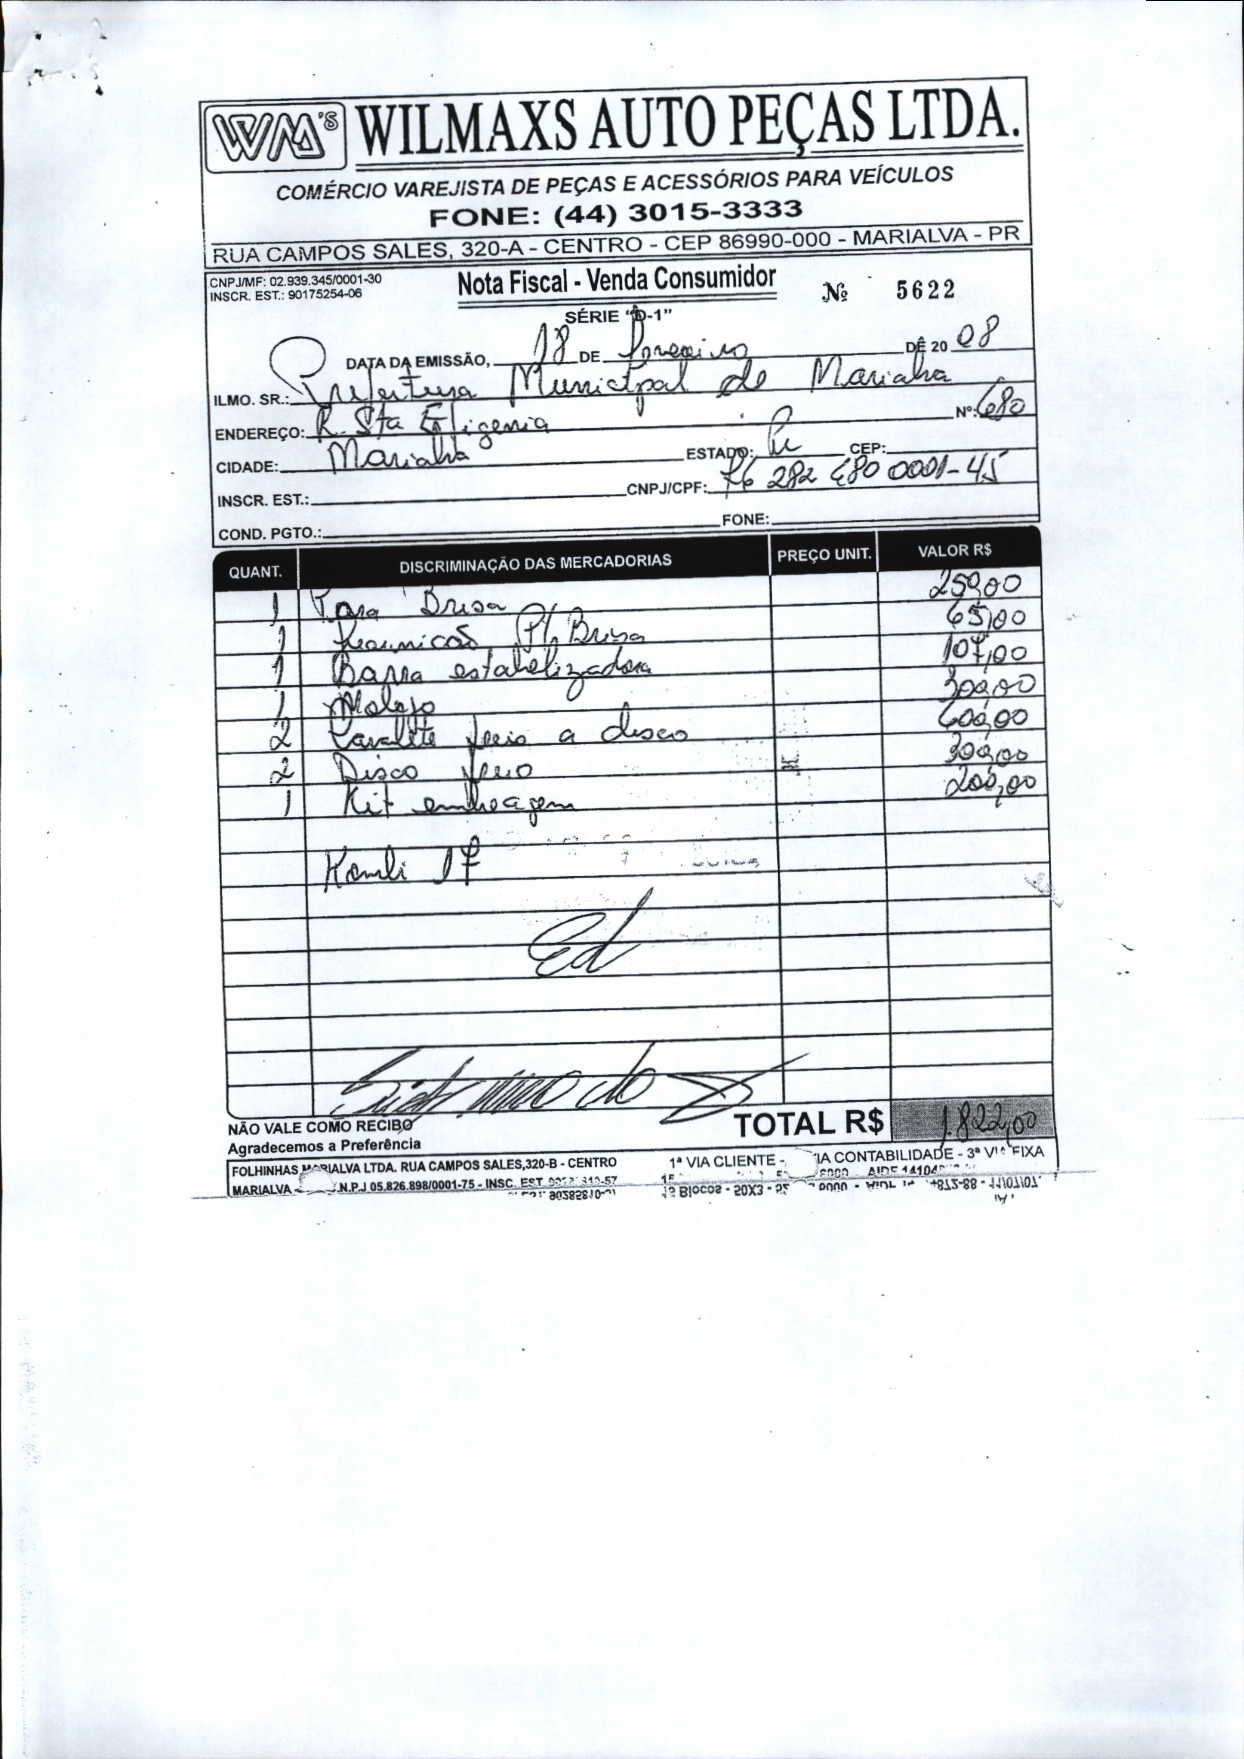 WM'S WILMAXS AUTO PEÇAS LTDA.
COMÉRCIO VAREJISTA DE PEÇAS E ACESSÓRIOS PARA VEÍCULOS
FONE: (44) 3015-3333
RUA CAMPOS SALES, 320-A - CENTRO - CEP 86990-000 - MARIALVA - PR
CNPJ/MF: 02.939.345/0001-30
INSCR. EST.: 90175254-06
Nota Fiscal - Venda Consumidor
Nº 5622
SÉRIE "D-1"
DATA DA EMISSÃO, 18 DE DE 20 08
ILMO. SR.: Prefeitura Municipal de Marialva
ENDEREÇO: R. Sta Efigenia Nº: 680
CIDADE: Marialva ESTADO: Pr CEP:
INSCR. EST.: CNPJ/CPF: 76 282 680 0001-45
COND. PGTO.: FONE:
QUANT. DISCRIMINAÇÃO DAS MERCADORIAS PREÇO UNIT. VALOR R$
1 Para Brisa 250,00
1 P/ Brisa 65,00
1 Barra estabelizadora 107,00
1 Molejo 300,00
2 Cavalete freio a disco 600,00
2 Disco freio 300,00
1 Kit embreagem 200,00
Kombi 17
Ed
TOTAL R$ 1.822,00
NÃO VALE COMO RECIBO
Agradecemos a Preferência
FOLHINHAS MARIALVA LTDA. RUA CAMPOS SALES,320-B - CENTRO
MARIALVA - N.P.J 05.826.898/0001-75 - INSC. EST.
1ª VIA CLIENTE - IA CONTABILIDADE - 3ª VIA FIXA